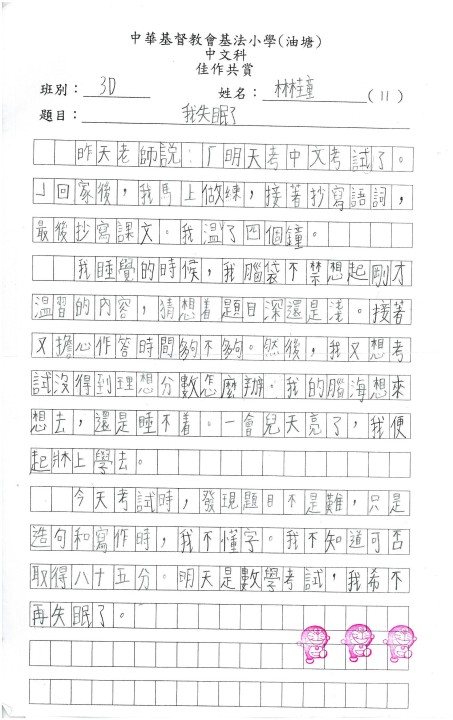 中華基督教會基法小學(油塘)
中文科
佳作共賞
班別：3D 姓名：林桂童(11)
題目：我失眠了
昨天老師説：「明天考中文考試了。
」回家後，我馬上做練，接著抄寫語詞，
最後抄寫課文。我溫了四個鐘。
我睡覺的時候，我腦袋不禁想起剛才
溫習的內容，猜想着題目深還是淺。接著
又擔心作答時間夠不夠。然後，我又想考
試沒得到理想分數怎麼辦。我的腦海想來
想去，還是睡不着。一會兒天亮了，我便
起牀上學去。
今天考試時，發現題目不是難，只是
造句和寫作時，我不懂字。我不知道可否
取得八十五分。明天是數學考試，我希不
再失眠了。